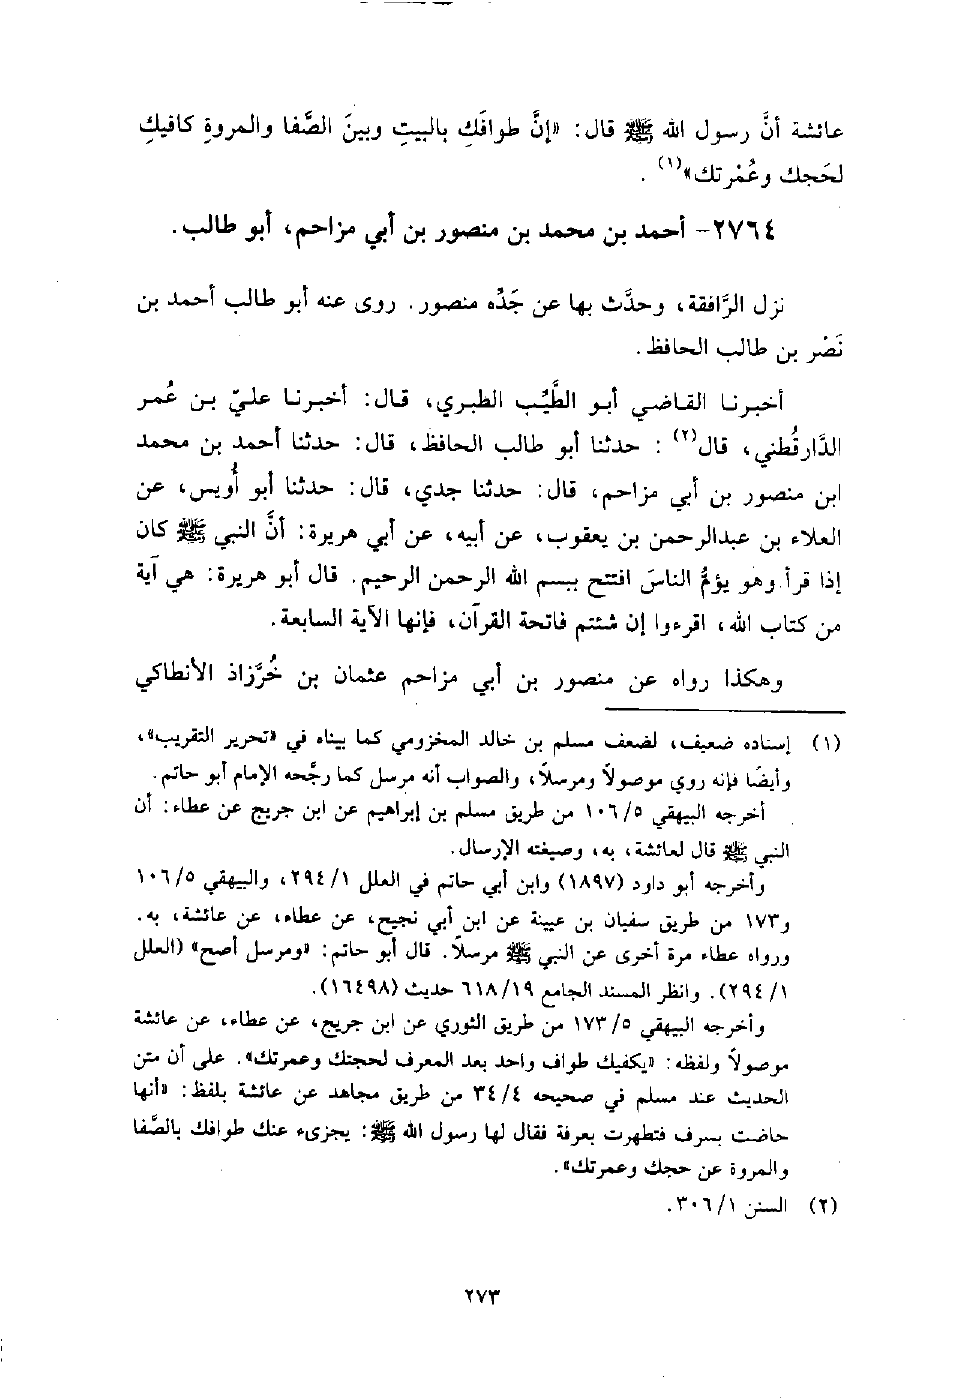 عائشة أنَّ رسول الله ﷺ قال: «إنَّ طوافَكِ بالبيتِ وبينَ الصَّفا والمروةِ كافيكِ
لحَجك وعُمْرتك»(١) .
٢٧٦٤- أحمد بن محمد بن منصور بن أبي مزاحم، أبو طالب.
نزل الرَّافقة، وحدَّث بها عن جَدِّه منصور. روى عنه أبو طالب أحمد بن
نَصْر بن طالب الحافظ.
أخبرنا القاضي أبو الطَّيِّب الطبري، قال: أخبرنا عليّ بن عُمر
الدَّارقُطني، قال(٢) : حدثنا أبو طالب الحافظ، قال: حدثنا أحمد بن محمد
ابن منصور بن أبي مزاحم، قال: حدثنا جدي، قال: حدثنا أبو أُويس، عن
العلاء بن عبدالرحمن بن يعقوب، عن أبيه، عن أبي هريرة: أنَّ النبي ﷺ كان
إذا قرأ وهو يؤمُّ الناسَ افتتح ببسم الله الرحمن الرحيم. قال أبو هريرة: هي آية
من كتاب الله، اقرءوا إن شئتم فاتحة القرآن، فإنها الآية السابعة.
وهكذا رواه عن منصور بن أبي مزاحم عثمان بن خُرَّزاذ الأنطاكي
(١) إسناده ضعيف، لضعف مسلم بن خالد المخزومي كما بيناه في «تحرير التقريب»،
وأيضًا فإنه روي موصولاً ومرسلاً، والصواب أنه مرسل كما رجَّحه الإمام أبو حاتم.
أخرجه البيهقي ٥/ ١٠٦ من طريق مسلم بن إبراهيم عن ابن جريج عن عطاء: أن
النبي ﷺ قال لعائشة، به، وصيغته الإرسال.
وأخرجه أبو داود (١٨٩٧) وابن أبي حاتم في العلل ١/ ٢٩٤، والبيهقي ٥/ ١٠٦
و١٧٣ من طريق سفيان بن عيينة عن ابن أبي نجيح، عن عطاء، عن عائشة، به.
ورواه عطاء مرة أخرى عن النبي ﷺ مرسلاً. قال أبو حاتم: «ومرسل أصح» (العلل
١/ ٢٩٤). وانظر المسند الجامع ١٩/ ٦١٨ حديث (١٦٤٩٨).
وأخرجه البيهقي ٥/ ١٧٣ من طريق الثوري عن ابن جريج، عن عطاء، عن عائشة
موصولاً ولفظه: «يكفيك طواف واحد بعد المعرف لحجتك وعمرتك». على أن متن
الحديث عند مسلم في صحيحه ٤/ ٣٤ من طريق مجاهد عن عائشة بلفظ: «أنها
حاضت بسرف فتطهرت بعرفة فقال لها رسول الله ﷺ: يجزىء عنك طوافك بالصَّفا
والمروة عن حجك وعمرتك».
(٢) السنن ١/ ٣٠٦.
٢٧٣